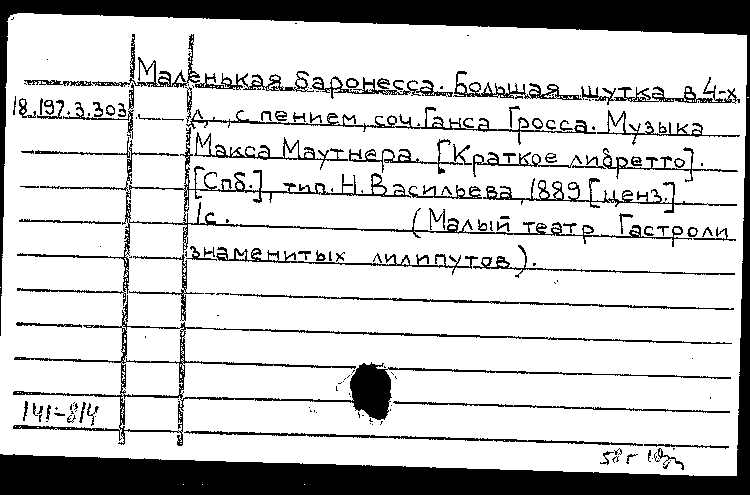 Маленькая баронесса. Большая шутка в 4-х
18.197.3.303 д., с пением, соч. Ганса Гросса. Музыка
Макса Маутнера. [Краткое либретто].
[Спб.], тип. Н. Васильева, 1889 [ценз.].
1с. (Малый театр Гастроли
знаменитых лилипутов).
141-814
58г